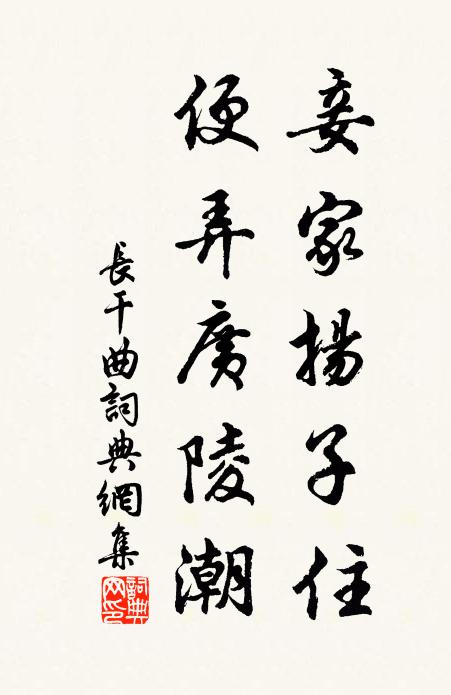 妾家揚子住
便弄廣陵潮
長干曲詞典網集
詞典
网印